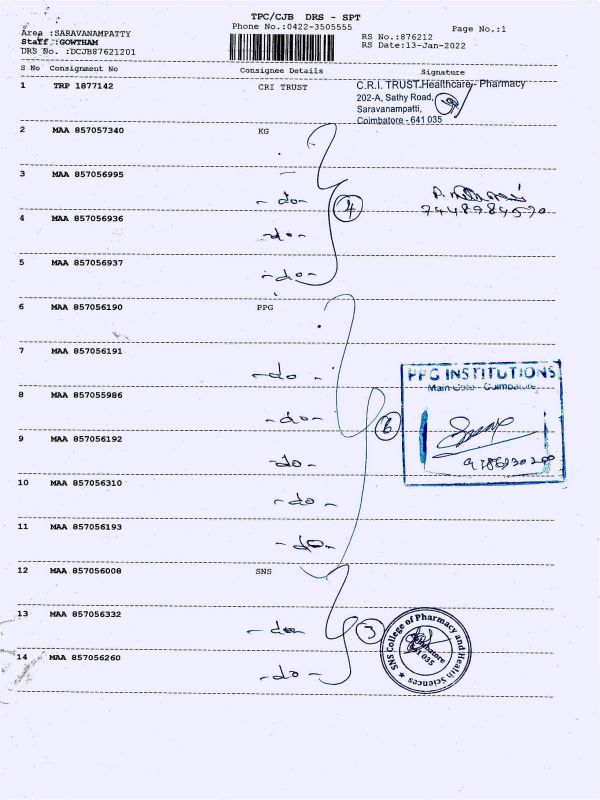 TPC/CJB DRS - SPT
Phone No.:0422-3505555
Page No.:1
Area :SARAVANAMPATTY
Staff :GOWTHAM
DRS No. :DCJB87621201
RS No.:876212
RS Date:13-Jan-2022
S No Consignment No Consignee Details Signature
1 TRP 1877142 CRI TRUST
C.R.I. TRUST Healthcare - Pharmacy
202-A, Sathy Road,
Saravanampatti,
Coimbatore - 641 035
2 MAA 857057340 KG
3 MAA 857056995
- do -
4
4 MAA 857056936
- do -
5 MAA 857056937
- do -
6 MAA 856056190 PPG
7 MAA 857056191
- do -
PPG INSTITUTIONS
Main Gate - Coimbatore
8 MAA 857055986
- do -
6
9 MAA 857056192
- do -
10 MAA 857056310
- do -
11 MAA 857056193
- do -
12 MAA 857056008 SNS
13 MAA 857056332
- do -
3
SNS College of Pharmacy and Health Sciences
Coimbatore
641 035
14 MAA 857056260
- do -